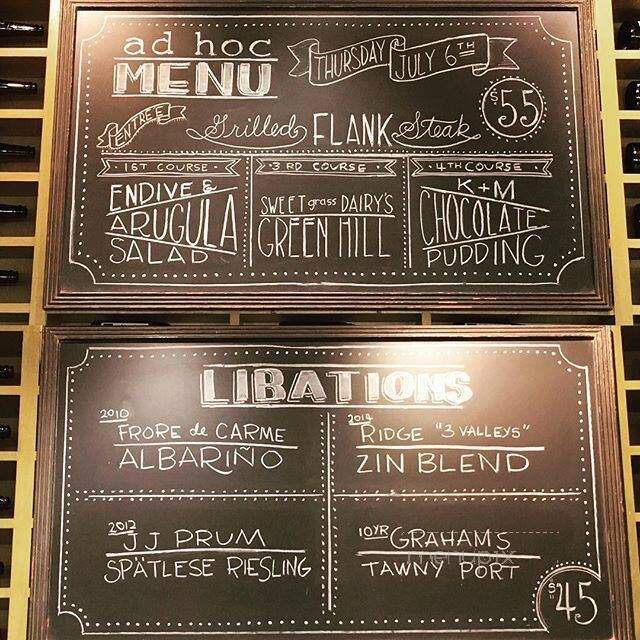 ad hoc
MENU
THURSDAY JULY 6TH
$55
ENTREE
Grilled FLANK Steak
1ST COURSE
ENDIVE &
ARUGULA
SALAD
3RD COURSE
SWEET grass DAIRY'S
GREEN HILL
4TH COURSE
K+M
CHOCOLATE
PUDDING
LIBATIONS
2010
FRORE de CARME
ALBARIÑO
2014
RIDGE "3 VALLEYS"
ZIN BLEND
2012
JJ PRUM
SPÄTLESE RIESLING
10YR GRAHAMS
TAWNY PORT
menupix
$45